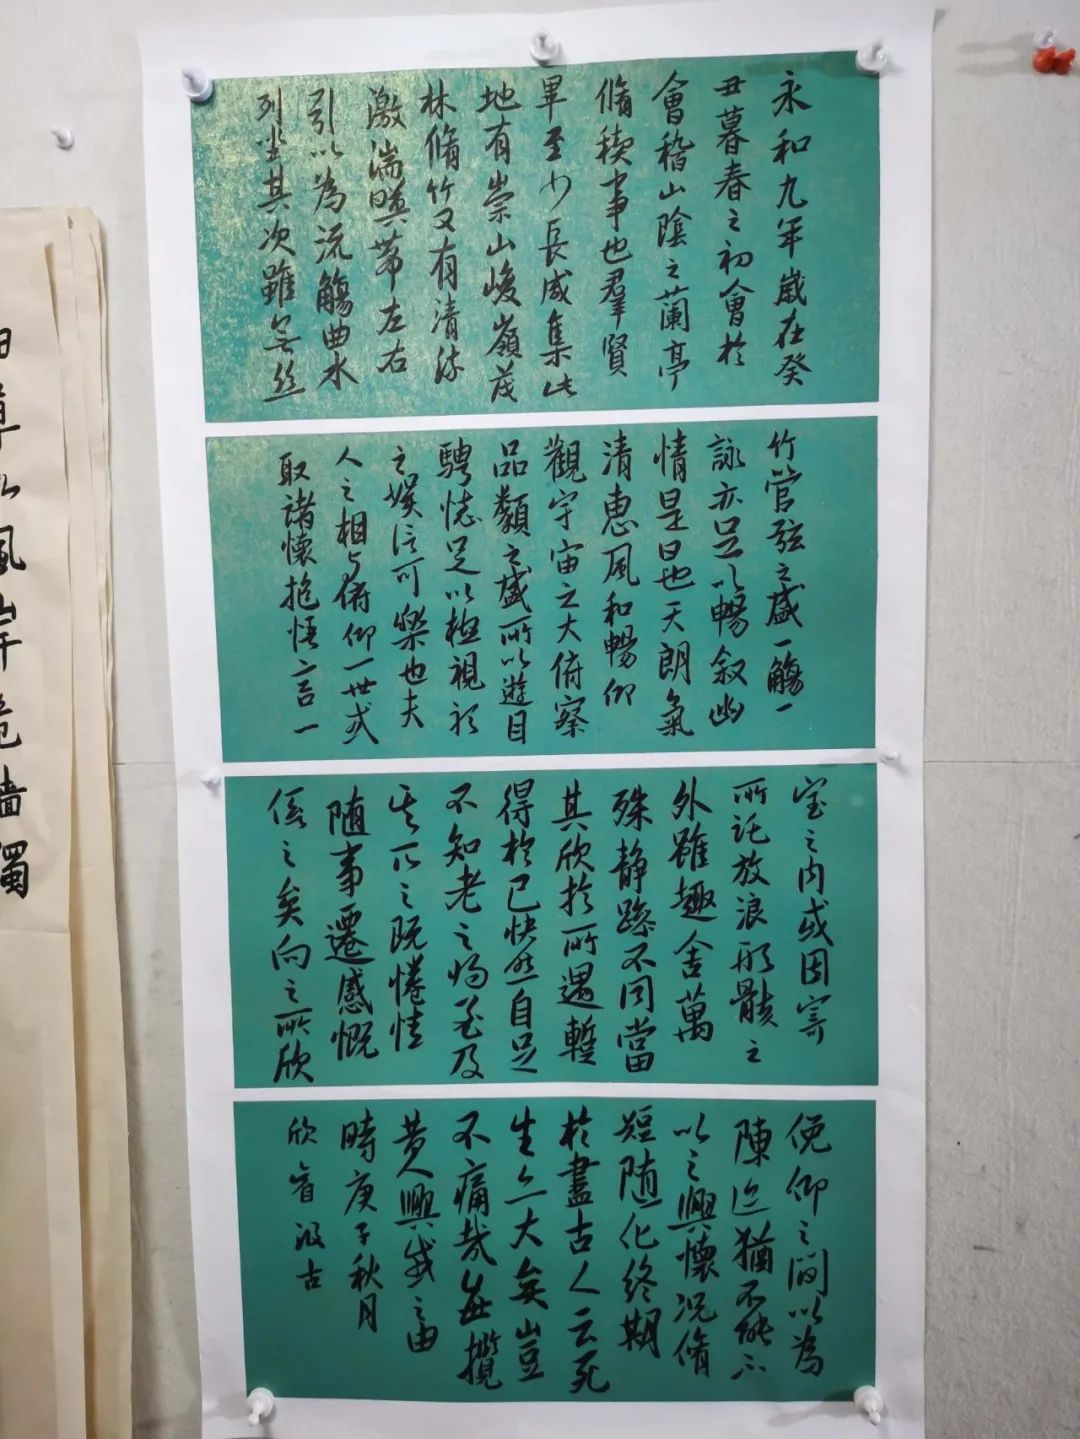 永和九年歲在癸
丑暮春之初會於
會稽山陰之蘭亭
脩稧事也羣賢
畢至少長咸集此
地有崇山峻嶺茂
林脩竹又有清流
激湍暎帶左右
引以為流觴曲水
列坐其次雖無絲
竹管弦之盛一觴一
詠亦足以暢叙幽
情是日也天朗氣
清惠風和暢仰
觀宇宙之大俯察
品類之盛所以遊目
騁懷足以極視聽
之娛信可樂也夫
人之相與俯仰一世或
取諸懷抱悟言一
室之內或因寄
所託放浪形骸之
外雖趣舍萬
殊静躁不同當
其欣於所遇暫
得於己快然自足
不知老之将至及
其所之既惓情
随事遷感慨
係之矣向之所欣
俛仰之間以為
陳迹猶不能不
以之興懷況脩
短随化終期
於盡古人云死
生亦大矣豈
不痛哉每攬
昔人興感之由
時庚子秋月
欣
古
風岸
牆獨